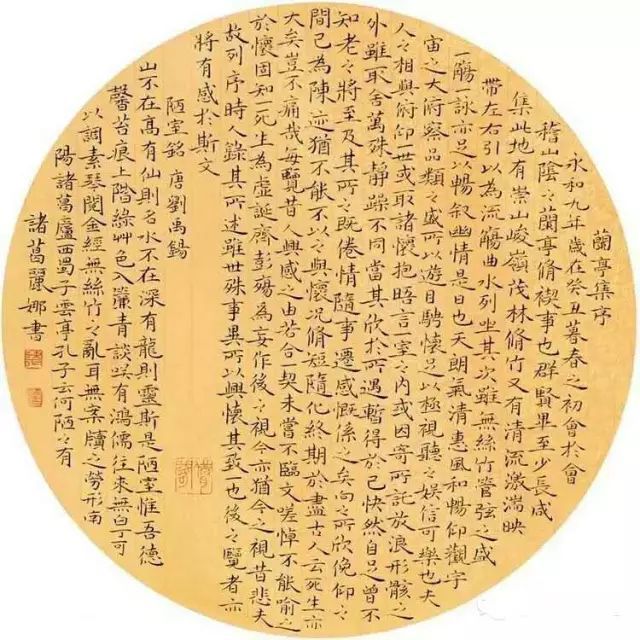 蘭亭集序
永和九年歲在癸丑暮春之初會於會
稽山陰之蘭亭脩禊事也群賢畢至少長咸
集此地有崇山峻嶺茂林脩竹又有清流激湍映
帶左右引以為流觴曲水列坐其次雖無絲竹管弦之盛
一觴一詠亦足以暢叙幽情是日也天朗氣清惠風和暢仰觀宇
宙之大府察品類之盛所以遊目騁懷足以極視聽之娛信可樂也夫
人之相與俯仰一世或取諸懷抱晤言室之內或因寄所託放浪形骸之
外雖取舍萬殊靜躁不同當其欣於所遇暫得於己快然自足曾不
知老之將至及其所之既倦情隨事遷感慨係之矣向之所欣俛仰之
間已為陳迹猶不能不以之興懷況脩短隨化終期於盡古人云死生亦
大矣豈不痛哉每覽昔人興感之由若合契未嘗不臨文嗟悼不能喻之
於懷固知一死生為虛誕齊彭殤為妄作後之視今亦猶今之視昔悲夫
故列序時人錄其所述雖世殊事異所以興懷其致一也後之覽者亦
將有感於斯文
陋室銘 唐劉禹錫
山不在高有仙則名水不在深有龍則靈斯是陋室惟吾德
馨苔痕上階綠艸色入簾青談咲有鴻儒往來無白丁可
以調素琴閱金經無絲竹之亂耳無案牘之勞形南
陽諸葛廬西蜀子雲亭孔子云何陋之有
諸葛麗娜書